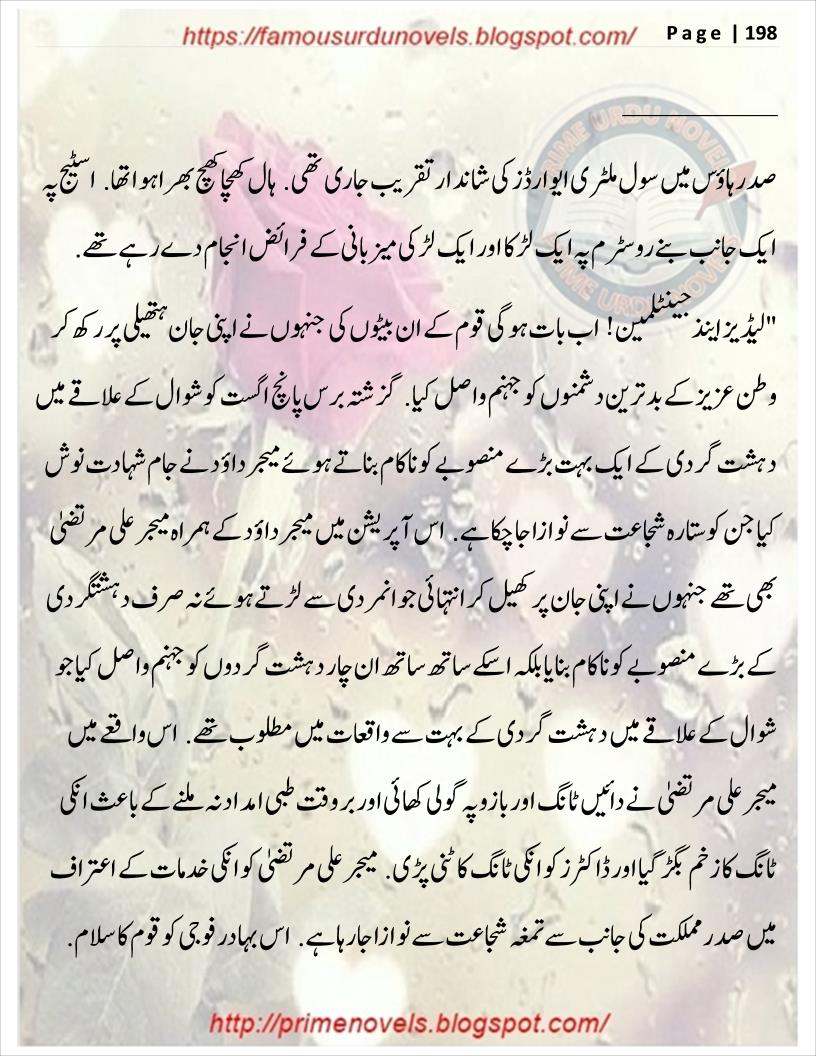 https://famousurdunovels.blogspot.com/ Page | 198
PRIME URDU NOVELS
صدر ہاؤس میں سول ملٹری ایوارڈز کی شاندار تقریب جاری تھی. ہال کھچا کھچ بھرا ہوا تھا. اسٹیج پہ
ایک جانب بنے روسٹرم پہ ایک لڑکا اور ایک لڑکی میزبانی کے فرائض انجام دے رہے تھے.
"لیڈیز اینڈ جینٹلمین! اب بات ہو گی قوم کے ان بیٹوں کی جنہوں نے اپنی جان ہتھیلی پر رکھ کر
وطن عزیز کے بدترین دشمنوں کو جہنم واصل کیا. گزشتہ برس پانچ اگست کو شوال کے علاقے میں
دہشت گردی کے ایک بہت بڑے منصوبے کو ناکام بناتے ہوئے میجر داؤد نے جام شہادت نوش
کیا جن کو ستارہ شجاعت سے نوازا جا چکا ہے. اس آپریشن میں میجر داؤد کے ہمراہ میجر علی مرتضیٰ
بھی تھے جنہوں نے اپنی جان پر کھیل کر انتہائی جوانمردی سے لڑتے ہوئے نہ صرف دہشتگردی
کے بڑے منصوبے کو ناکام بنایا بلکہ اسکے ساتھ ساتھ ان چار دہشت گردوں کو جہنم واصل کیا جو
شوال کے علاقے میں دہشت گردی کے بہت سے واقعات میں مطلوب تھے. اس واقعے میں
میجر علی مرتضیٰ نے دائیں ٹانگ اور بازو پہ گولی کھائی اور بروقت طبی امداد نہ ملنے کے باعث انکی
ٹانگ کا زخم بگڑ گیا اور ڈاکٹرز کو انکی ٹانگ کاٹنی پڑی. میجر علی مرتضیٰ کو انکی خدمات کے اعتراف
میں صدر مملکت کی جانب سے تمغہ شجاعت سے نوازا جا رہا ہے. اس بہادر فوجی کو قوم کا سلام.
http://primenovels.blogspot.com/